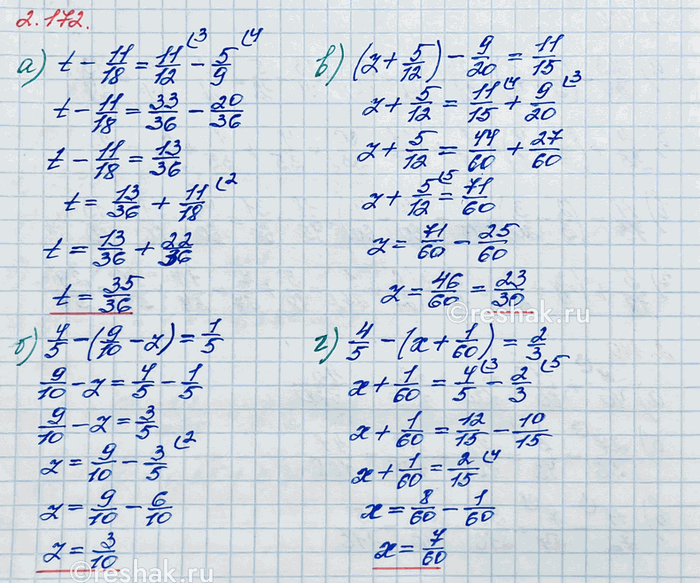 2.172.
а) t - 11/18 = 11/12 (3 - 5/9 (4
t - 11/18 = 33/36 - 20/36
t - 11/18 = 13/36
t = 13/36 + 11/18 (2
t = 13/36 + 22/36
t = 35/36
б) 4/5 - (9/10 - z) = 1/5
9/10 - z = 4/5 - 1/5
9/10 - z = 3/5
z = 9/10 - 3/5 (2
z = 9/10 - 6/10
z = 3/10
в) (z + 5/12) - 9/20 = 11/15
z + 5/12 = 11/15 (4 + 9/20 (3
z + 5/12 = 44/60 + 27/60
z + 5/12 (5 = 71/60
z = 71/60 - 25/60
z = 46/60 = 23/30
©reshak.ru
г) 4/5 - (x + 1/60) = 2/3
x + 1/60 = 4/5 (3 - 2/3 (5
x + 1/60 = 12/15 - 10/15
x + 1/60 = 2/15 (4
x = 8/60 - 1/60
x = 7/60